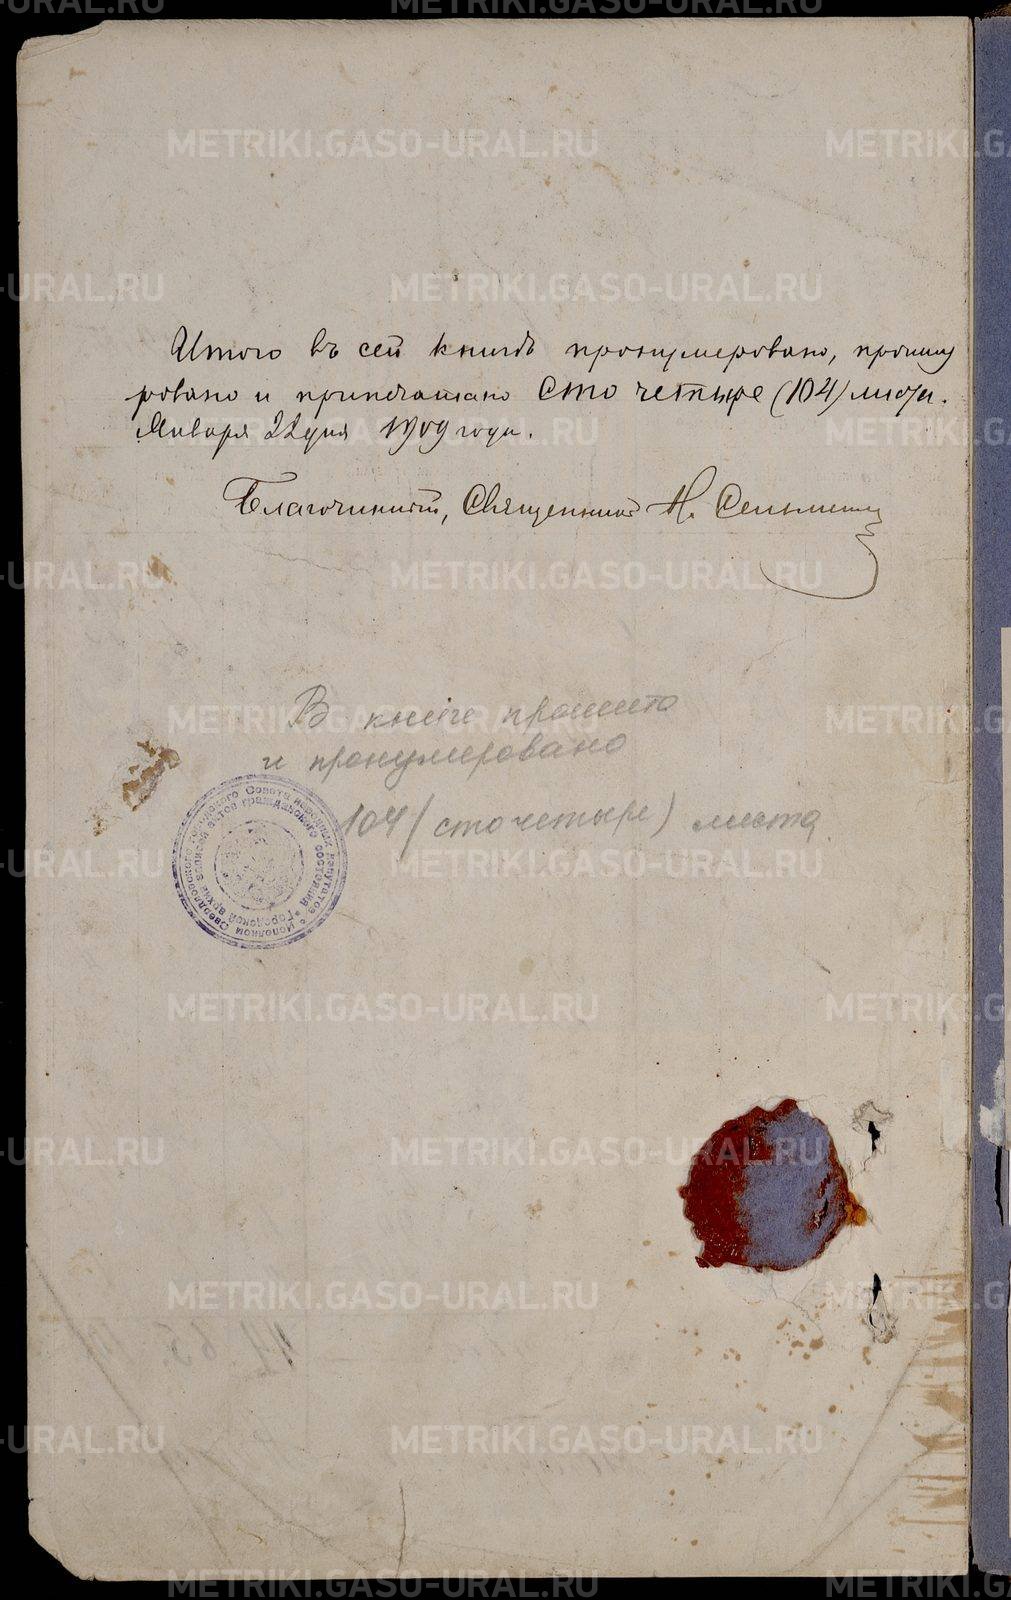 Итого въ сей книгѣ пронумеровано, прошну
ровано и припечатано Сто четыре (104) листа.
Января 22 дня 1909 года.
Благочинный, Священникъ Н.
В книге прошито
и пронумеровано
104 (сто четыре) листа.
Исполком Свердловского городского Совета народных депутатов
Городской архив записей актов гражданского состояния
METRIKI.GASO-URAL.RU